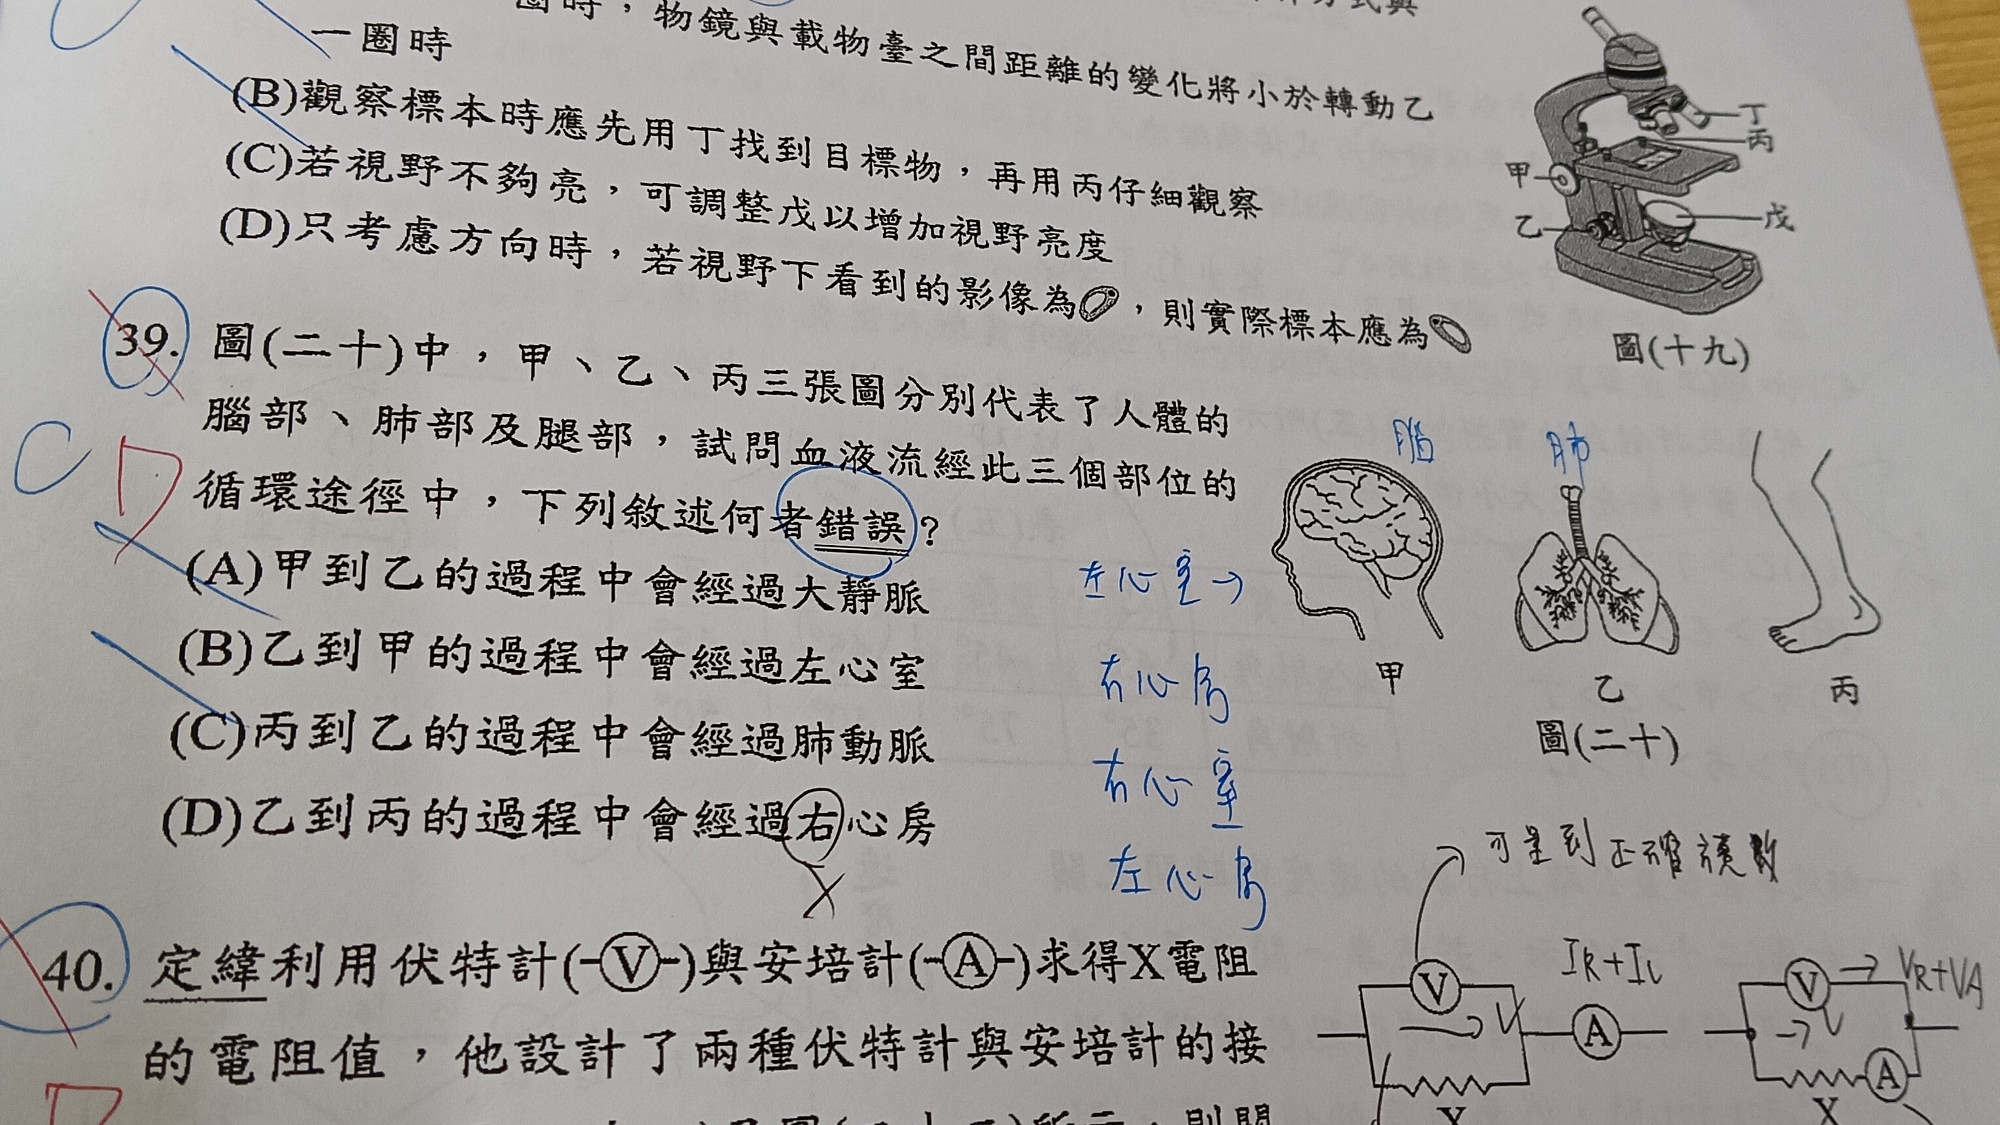 圈時，物鏡與載物臺之間距離的變化將小於轉動乙
一圈時
(B)觀察標本時應先用丁找到目標物，再用丙仔細觀察
(C)若視野不夠亮，可調整戊以增加視野亮度
(D)只考慮方向時，若視野下看到的影像為，則實際標本應為
丁
丙
甲
乙
戊
圖(十九)
39. 圖(二十)中，甲、乙、丙三張圖分別代表了人體的
腦部、肺部及腿部，試問血液流經此三個部位的
循環途徑中，下列敘述何者錯誤？
(A)甲到乙的過程中會經過大靜脈
(B)乙到甲的過程中會經過左心室
(C)丙到乙的過程中會經過肺動脈
(D)乙到丙的過程中會經過右心房
X
C
D
腦
肺
左心室→
右心房
右心室
左心房
甲
乙
丙
圖(二十)
40. 定緯利用伏特計(-V-)與安培計(-A-)求得X電阻
的電阻值，他設計了兩種伏特計與安培計的接
D
可量到正確讀數
V
IR+IV
A
X
V
VR+VA
A
X